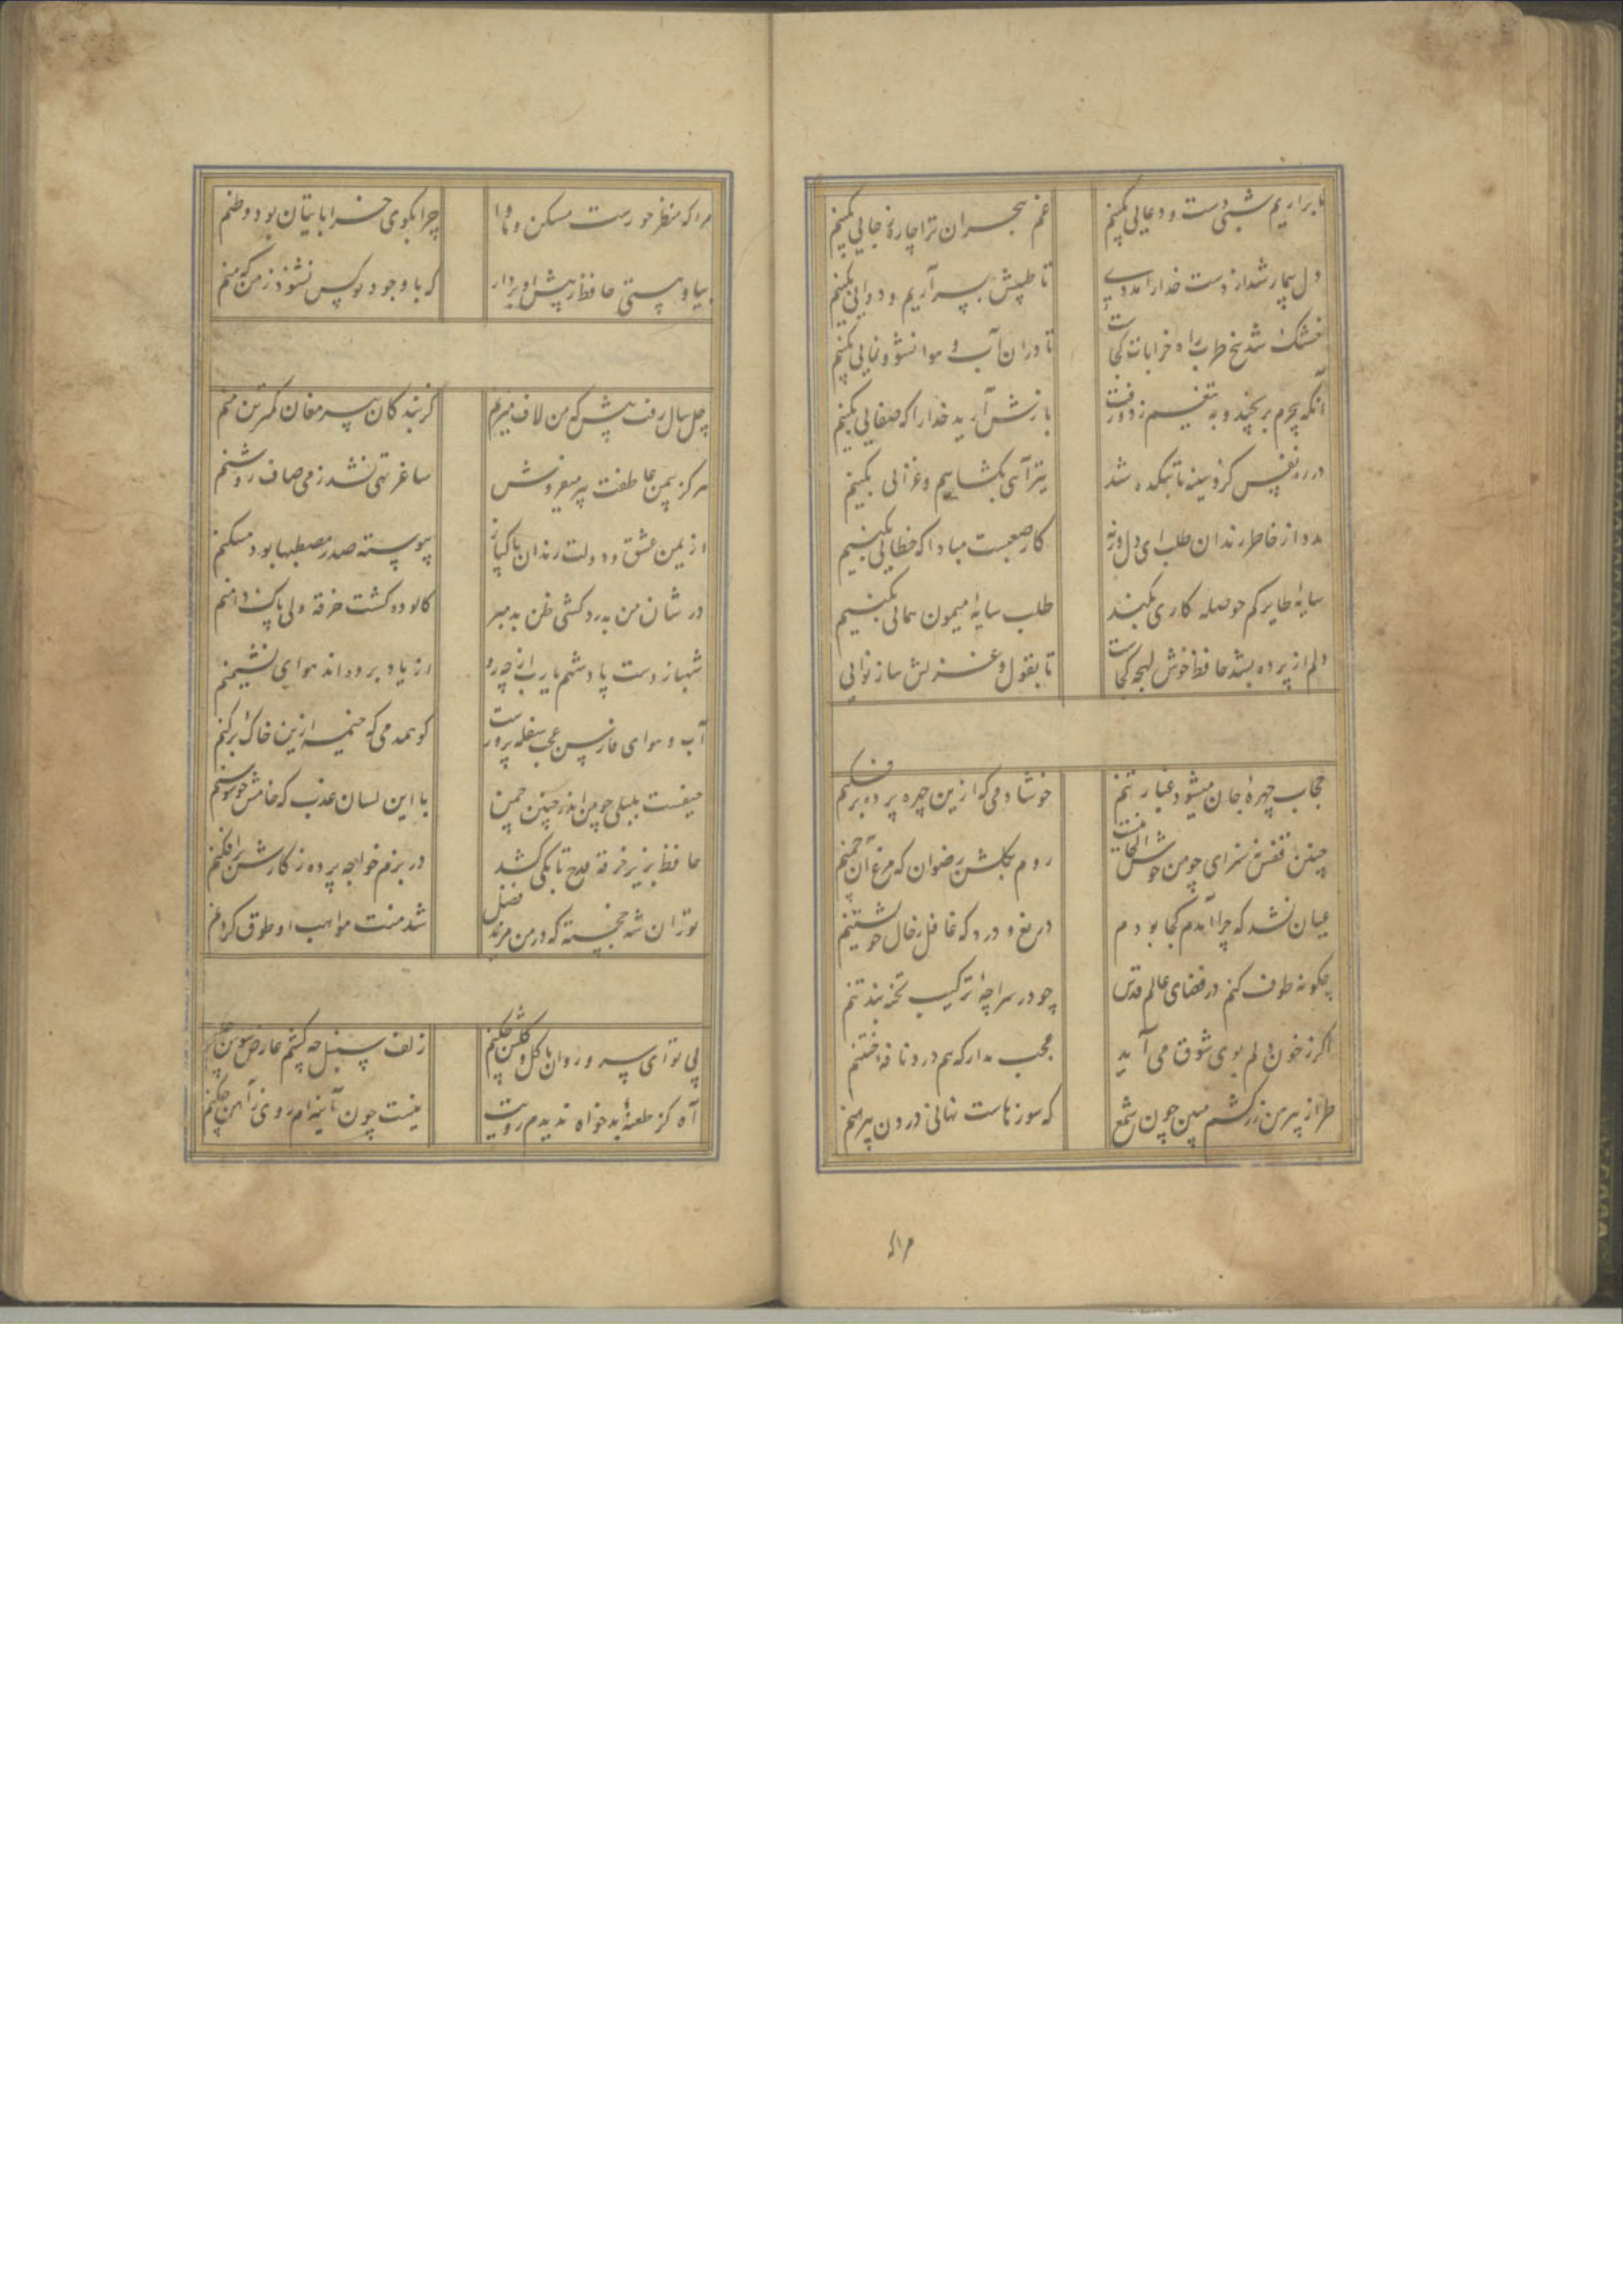 ما براریم شبی دست و دعایی بکنیم
غم هجران ترا چاره ز جایی بکنیم
دل بیمار شد از دست خدا را مددی
تا طبیبش بسر آریم و دوایی بکنیم
خشک شد بیخ طرب راه خرابات کجاست
تا در ان آب و هوا نشو و نمایی بکنیم
آنکه بی جرم برنجید و به تیغم زد و رفت
بازش آرید خدا را که صفایی بکنیم
در ره نفس کزو سینه ما بتکده شد
تیر آهی بکشاییم و غزایی بکنیم
مدد از خاطر رندان طلب ای دل ورنه
کار صعبست مبادا که خطایی بکنیم
سایهٔ طایر کم حوصله کاری نکند
طلب سایهٔ میمون همایی بکنیم
دلم از پرده بشد حافظ خوش لهجه کجاست
تا بقول و غزلش ساز نوایی
حجاب چهرهٔ جان میشود غبار تنم
خوشا دمی که ازین چهره پرده برفکنم
چنین قفس نه سزای چو من خوش الحانیست
روم بکلشن رضوان که مرغ آن چمنم
عیان نشد که چرا آمدم کجا بودم
دریغ و درد که غافل ز حال خویشتنم
چکونه طوف کنم در فضای عالم قدس
چو در سراچهٔ ترکیب تخته بند تنم
اکر ز خون دلم بوی شوق می آید
عجب مدار که هم درد نافهٔ ختنم
طراز پیرهن زرکشم مبین چون شمع
که سوزهاست نهانی درون پیرهنم
مرا که منظر حورست مسکن و ماوا
چرا بکوی خراباتیان بود وطنم
بیا و هستی حافظ ز پیش او بردار
که با وجود تو کس نشنود ز من که منم
چل سال رفت بیش که من لاف میزنم
کز بندکان پیر مغان کمترین منم
هرکز بیمن عاطفت پیر میفروش
ساغر تهی نشد ز می صاف روشنم
از یمن عشق و دولت رندان پاکباز
پیوسته صدر مصطبها بود مسکنم
در شان من بدردکشی ظن بد مبر
کالوده کشت خرقه ولی پاک دامنم
شهباز دست پادشهم یارب از چه رو
از یاد برده‌اند هوای نشیمنم
آب و هوای فارس عجب سفله پرورست
کو همدمی که خیمه ازین خاک برکنم
حیفست بلبلی چو من اندر چنین چمن
با این لسان عذب که خامش چو سوسنم
حافظ بزیر خرقه قدح تا بکی کشد
در بزم خواجه پرده ز کارش برافکنم
توران شه خجسته که در من مزید فضل
شد منت مواهب او طوق کردنم
بی تو ای سرو روان با کل و کلشن چکنم
زلف سنبل چه کشم عارض سوسن چکنم
آه کز طعنهٔ بدخواه ندیدم رویت
نیست چون آینه‌ام روی ز آهن چکنم